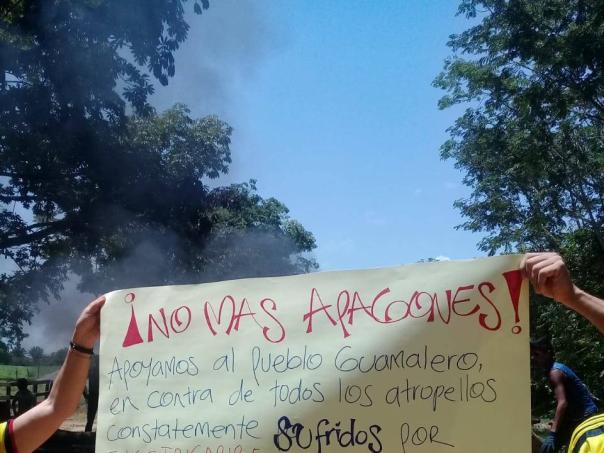 ¡NO MAS APAGONES!
Apoyamos al pueblo Guamalero,
en contra de todos los atropellos
constatemente sufridos por